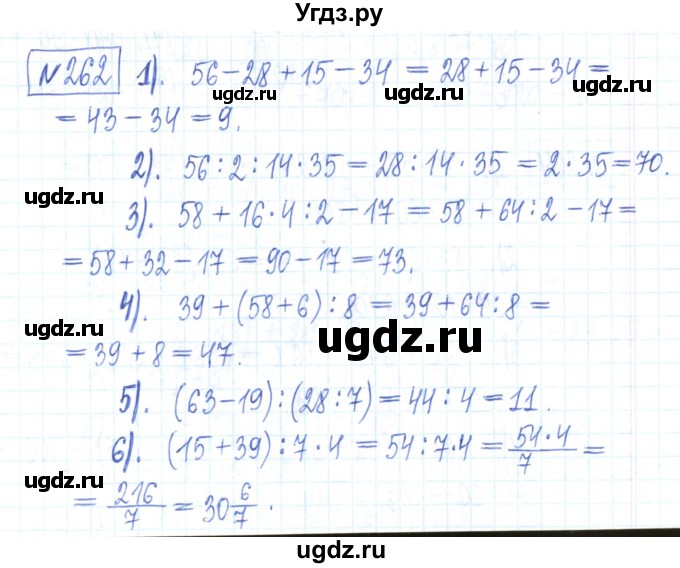 Угдз.ру
№262 1). 56-28+15-34 = 28+15-34 =
= 43-34 = 9.
2). 56:2:14·35 = 28:14·35 = 2·35 = 70.
3). 58+16·4:2-17 = 58+64:2-17 =
= 58+32-17 = 90-17 = 73.
4). 39+(58+6):8 = 39+64:8 =
= 39+8 = 47.
5). (63-19):(28:7) = 44:4 = 11.
6). (15+39):7·4 = 54:7·4 = 54·4/7 =
= 216/7 = 30 6/7.
ugdz.ru
ugdz.ru
ugdz.ru
ugdz.ru
ugdz.ru
ugdz.ru
ugdz.ru
ugdz.ru
ugdz.ru
ugdz.ru
ugdz.ru
ugdz.ru
ugdz.ru